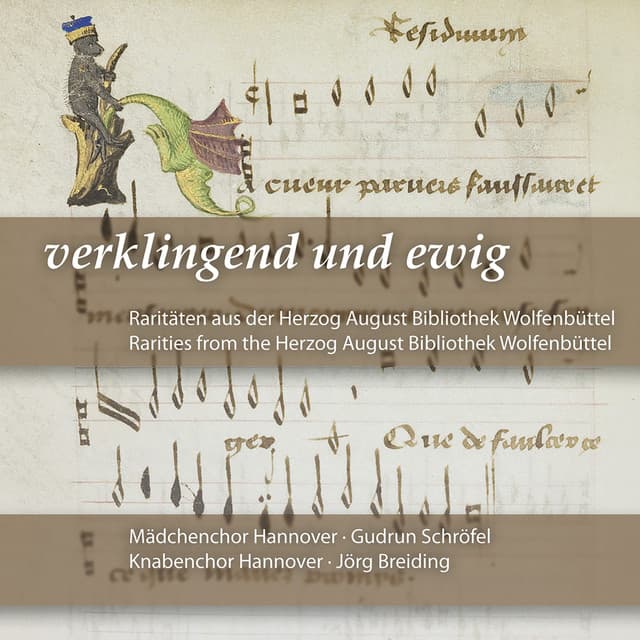 Residuum
a cueur parvers faulsaire et
verklingend und ewig
Raritäten aus der Herzog August Bibliothek Wolfenbüttel
Rarities from the Herzog August Bibliothek Wolfenbüttel
ger Que de
Mädchenchor Hannover · Gudrun Schröfel
Knabenchor Hannover · Jörg Breiding